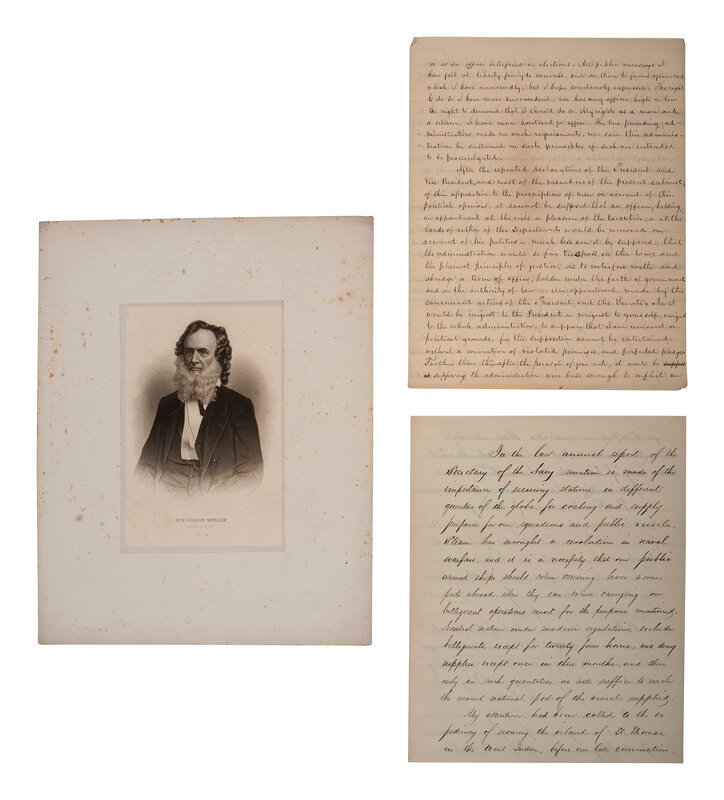 HON. GIDEON WELLES
or is an office interfered in elections. All public measures I
have felt at liberty freely to canvass, and on them to form opinions
which I have unreservedly, but I hope courteously expressed. The right
to do so I have never surrendered, nor has any officer, high or low
the right to demand that I should do so. My rights as a man and
a citizen, I have never bartered for office. The two preceding ad-
ministrations made no such requirements, nor can this adminis-
tration be sustained on such principles if such are intended
to be promulgated.
After the repeated declarations of the President and
Vice President, and most of the members of the present cabinet,
of their opposition to the proscription of men on account of their
political opinions, it cannot be supposed that an officer, holding
an appointment at the will & pleasure of the Executive, or at the
hands of either of the Departments would be removed on
account of his politics – much less could be supposed, that
the administration would so far trespass on the laws and
the plainest principles of justice, as to interfere with and
abridge a term of office, holden under the faith of government
and on the authority of law – an appointment made by the
concurrent action of the President and the Senate. No, it
would be unjust to the President – unjust to yourself, unjust
to the whole administration, to suppose that I am removed on
political grounds, for the supposition cannot be entertained
without a of violated promises, and forfeited pledges
Further than this – after the of your note, it would be
supposing the administration were base enough to inflict an
In the last annual report of the
Secretary of the Navy mention is made of the
importance of securing stations in different
quarters of the globe for coaling and supply
purposes for our squadrons and public vessels.
Steam has wrought a revolution in naval
warfare, and it is a necessity that our public
armed ships should, when cruising, have some
ports abroad where they can, when carrying on
belligerent operations resort for the purposes mentioned.
Neutral nations under modern regulations, exclude
belligerents except for twenty four hours, and deny
supplies except once in three months, and then
only in such quantities as will suffice to reach
the nearest national port of the vessels supplied.
My attention had been called to the ex
pediency of securing the island of St. Thomas
in the West Indies, before our late conversation.